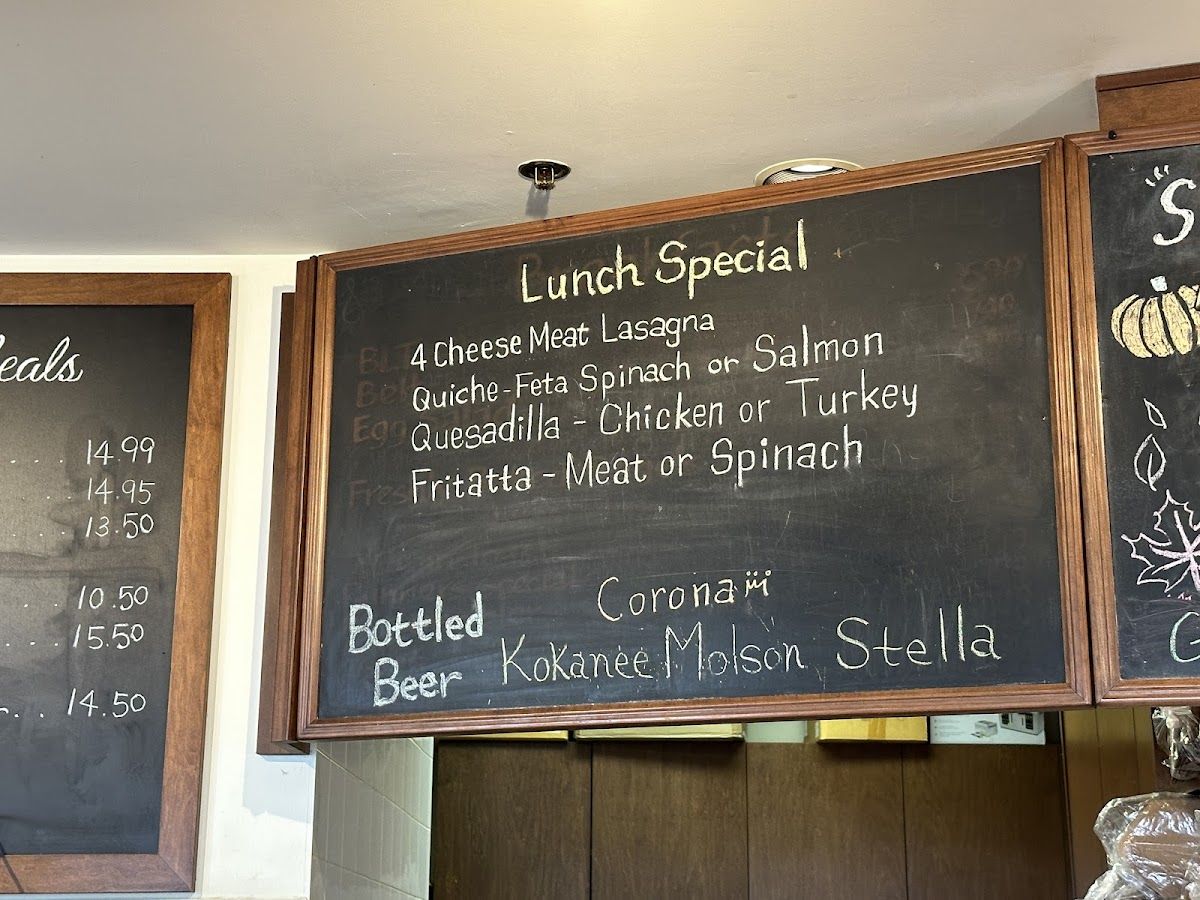 eals
14.99
14.95
13.50
10.50
15.50
14.50
Lunch Special
4 Cheese Meat Lasagna
Quiche-Feta Spinach or Salmon
Quesadilla - Chicken or Turkey
Fritatta - Meat or Spinach
Bottled
Beer
Corona
Kokanee Molson Stella
S
G